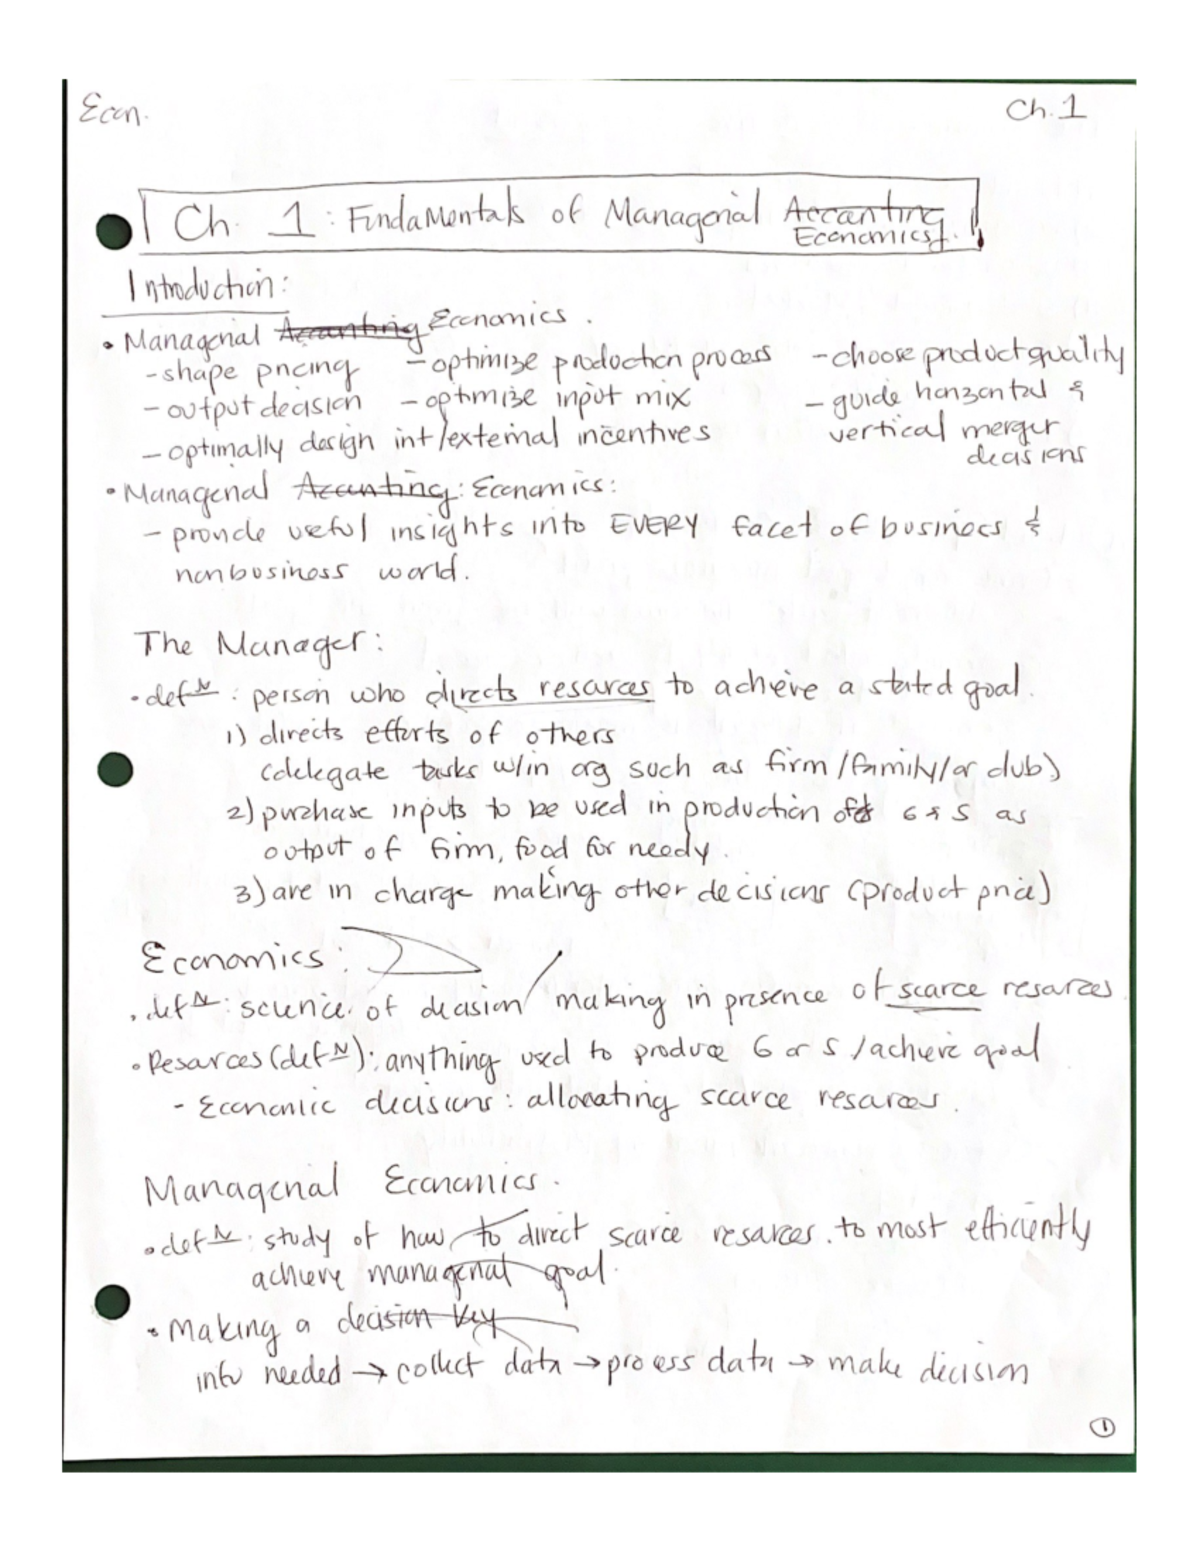 Econ.
Ch. 1
Ch. 1: Fundamentals of Managerial Accounting
Economics.
Introduction:
• Managerial Accounting Economics.
- shape pricing - optimize production process - choose product quality
- output decision - optimize input mix - guide horizontal &
- optimally design int/external incentives vertical merger
decisions
• Managerial Accounting: Economics:
- provide useful insights into EVERY facet of business &
nonbusiness world.
The Manager:
• defN: person who directs resources to achieve a stated goal.
1) directs efforts of others
(delegate tasks w/in org such as firm/family/or club)
2) purchase inputs to be used in production of G & S as
output of firm, food for needy.
3) are in charge making other decisions (product price)
Economics:
• defN: science of decision/making in presence of scarce resources.
• Resources (defN): anything used to produce G or S /achieve goal
- Economic decisions: allocating scarce resources.
Managerial Economics.
• defN: study of how to direct scarce resources. to most efficiently
achieve managerial goal.
• Making a decision key
info needed → collect data → process data → make decision
1